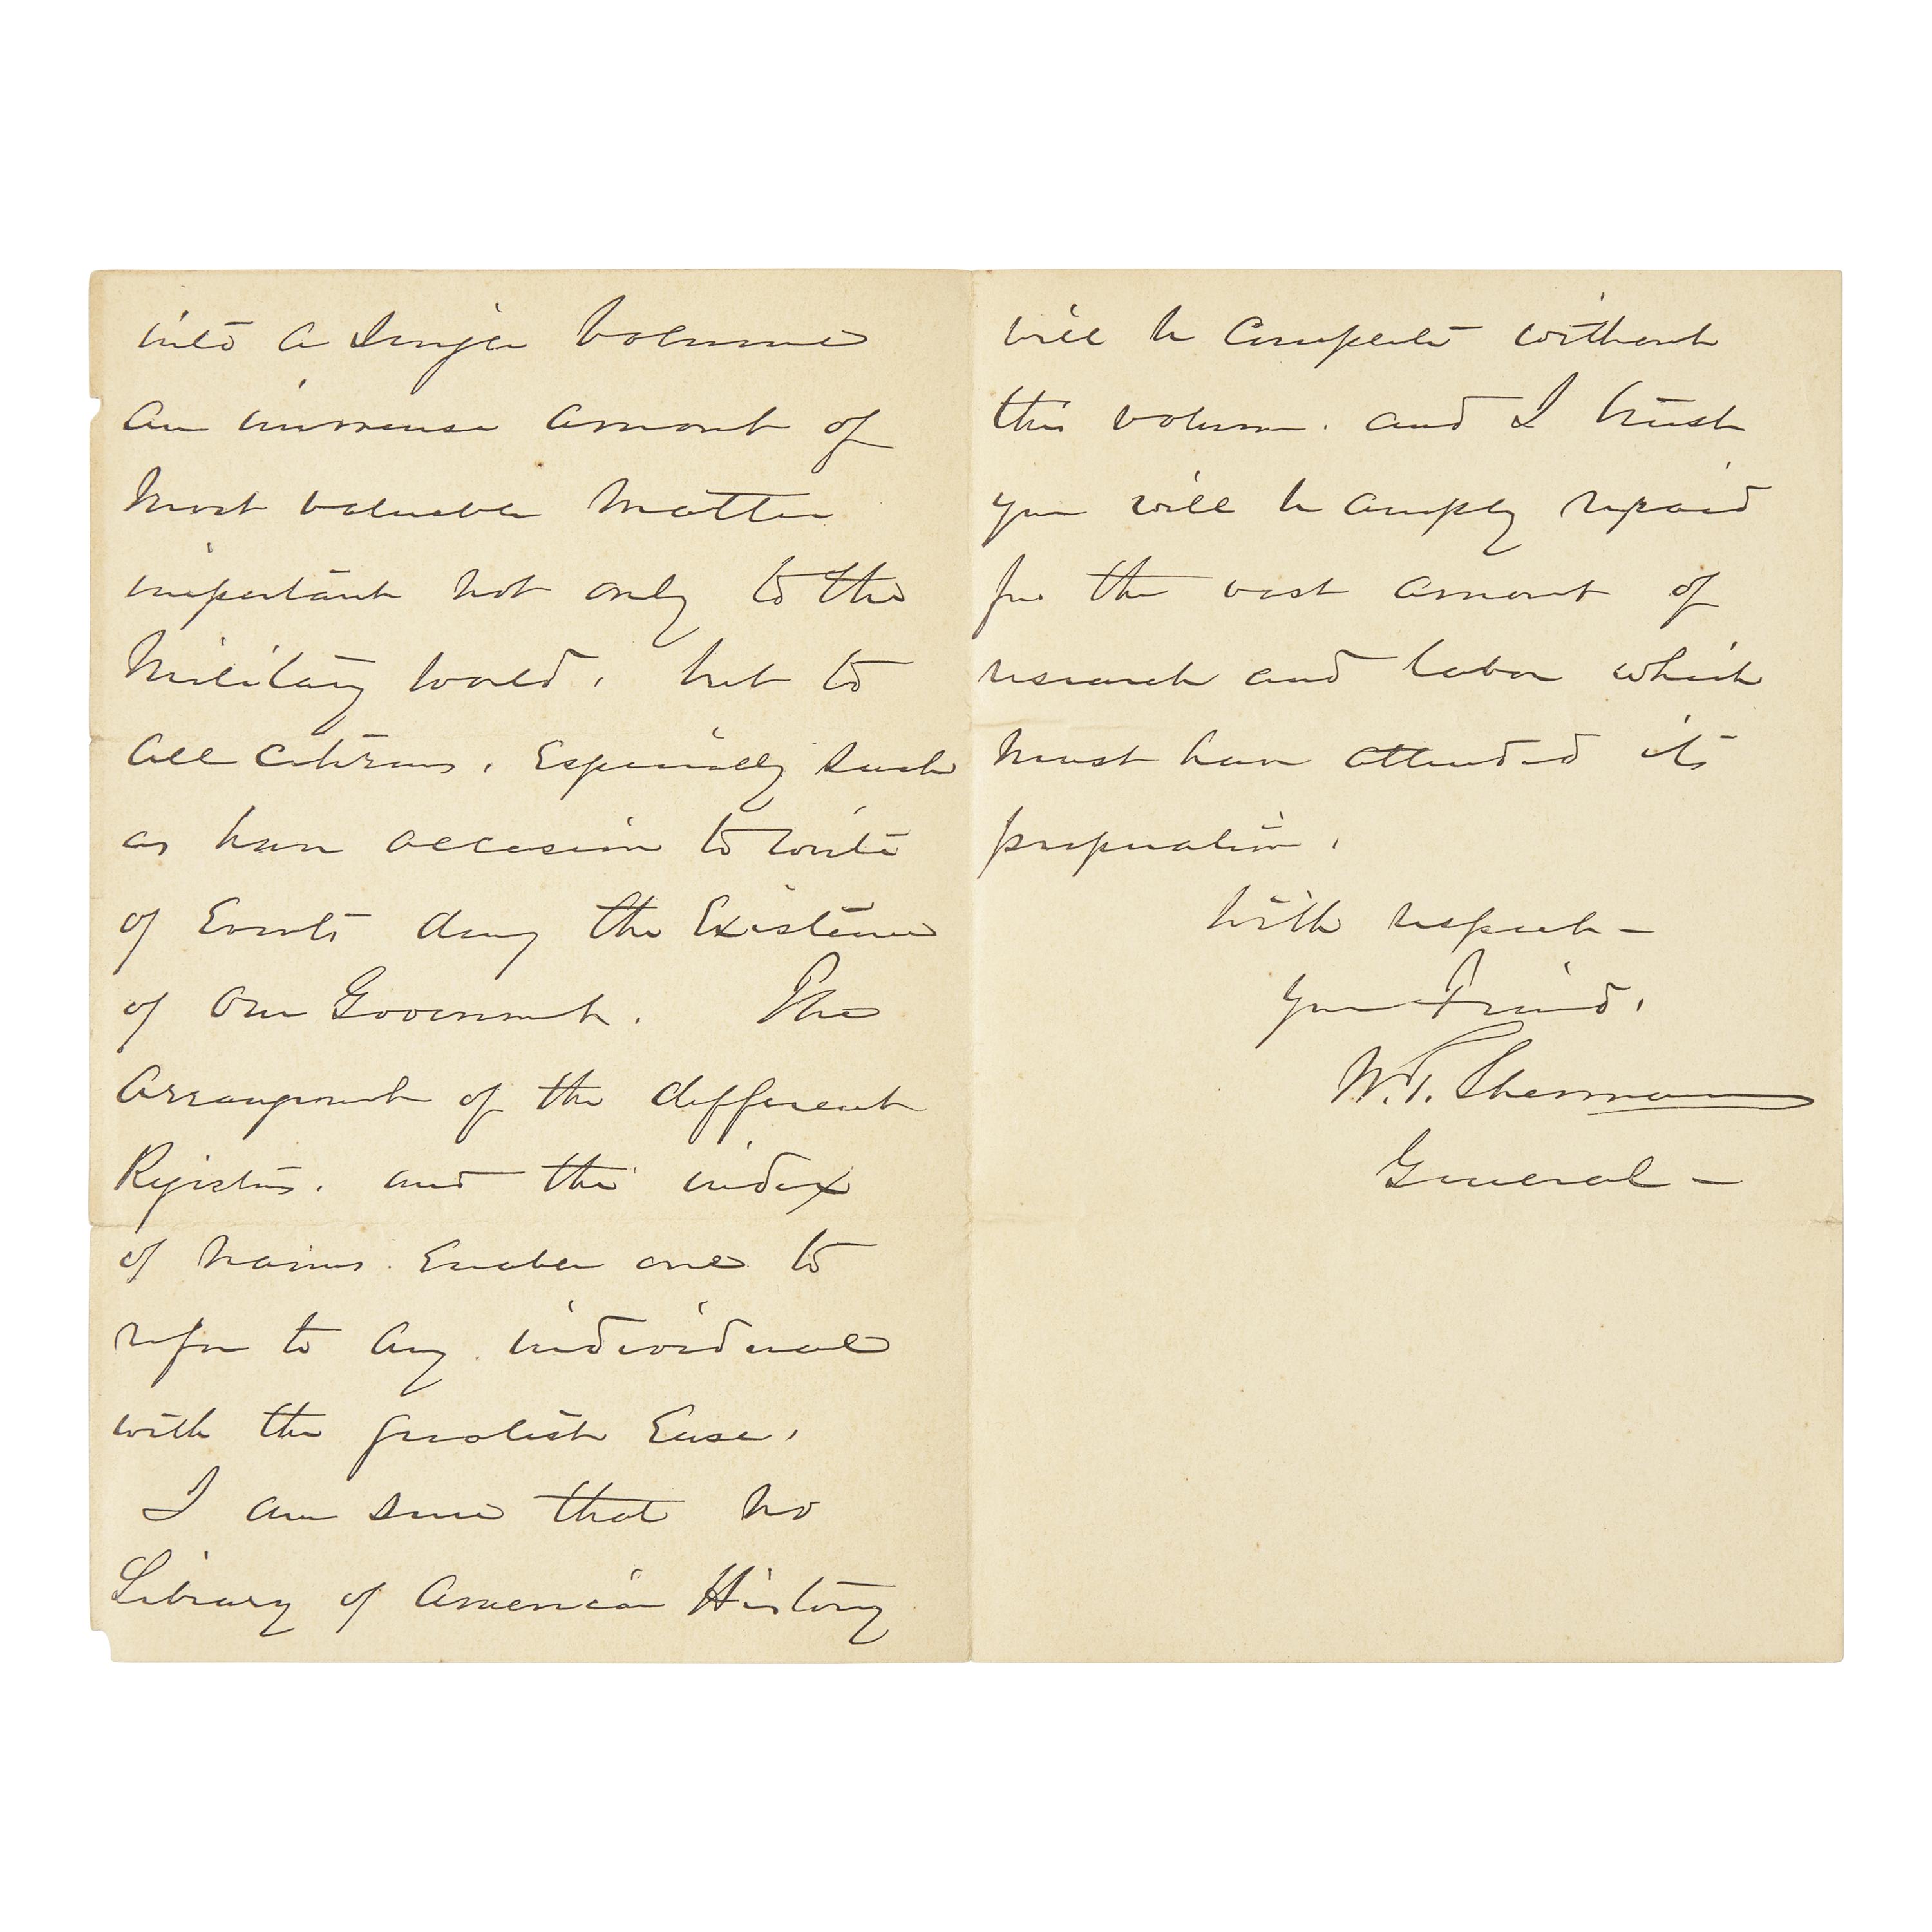 into a Single volume
an immense amount of
most valuable matter
important not only to the
Military world, but to
all citizens, Especially such
as have occasion to write
of Events during the Existence
of our Government. The
arrangement of the different
Registers, and the index
of names Enables one to
refer to any individual
with the greatest Ease,
I am sure that no
Library of American History
will be complete without
this volume, and I trust
you will be amply repaid
for the vast amount of
research and labor which
must have attended its
preparation,
With respect –
Your Friend,
W.T. Sherman
General –